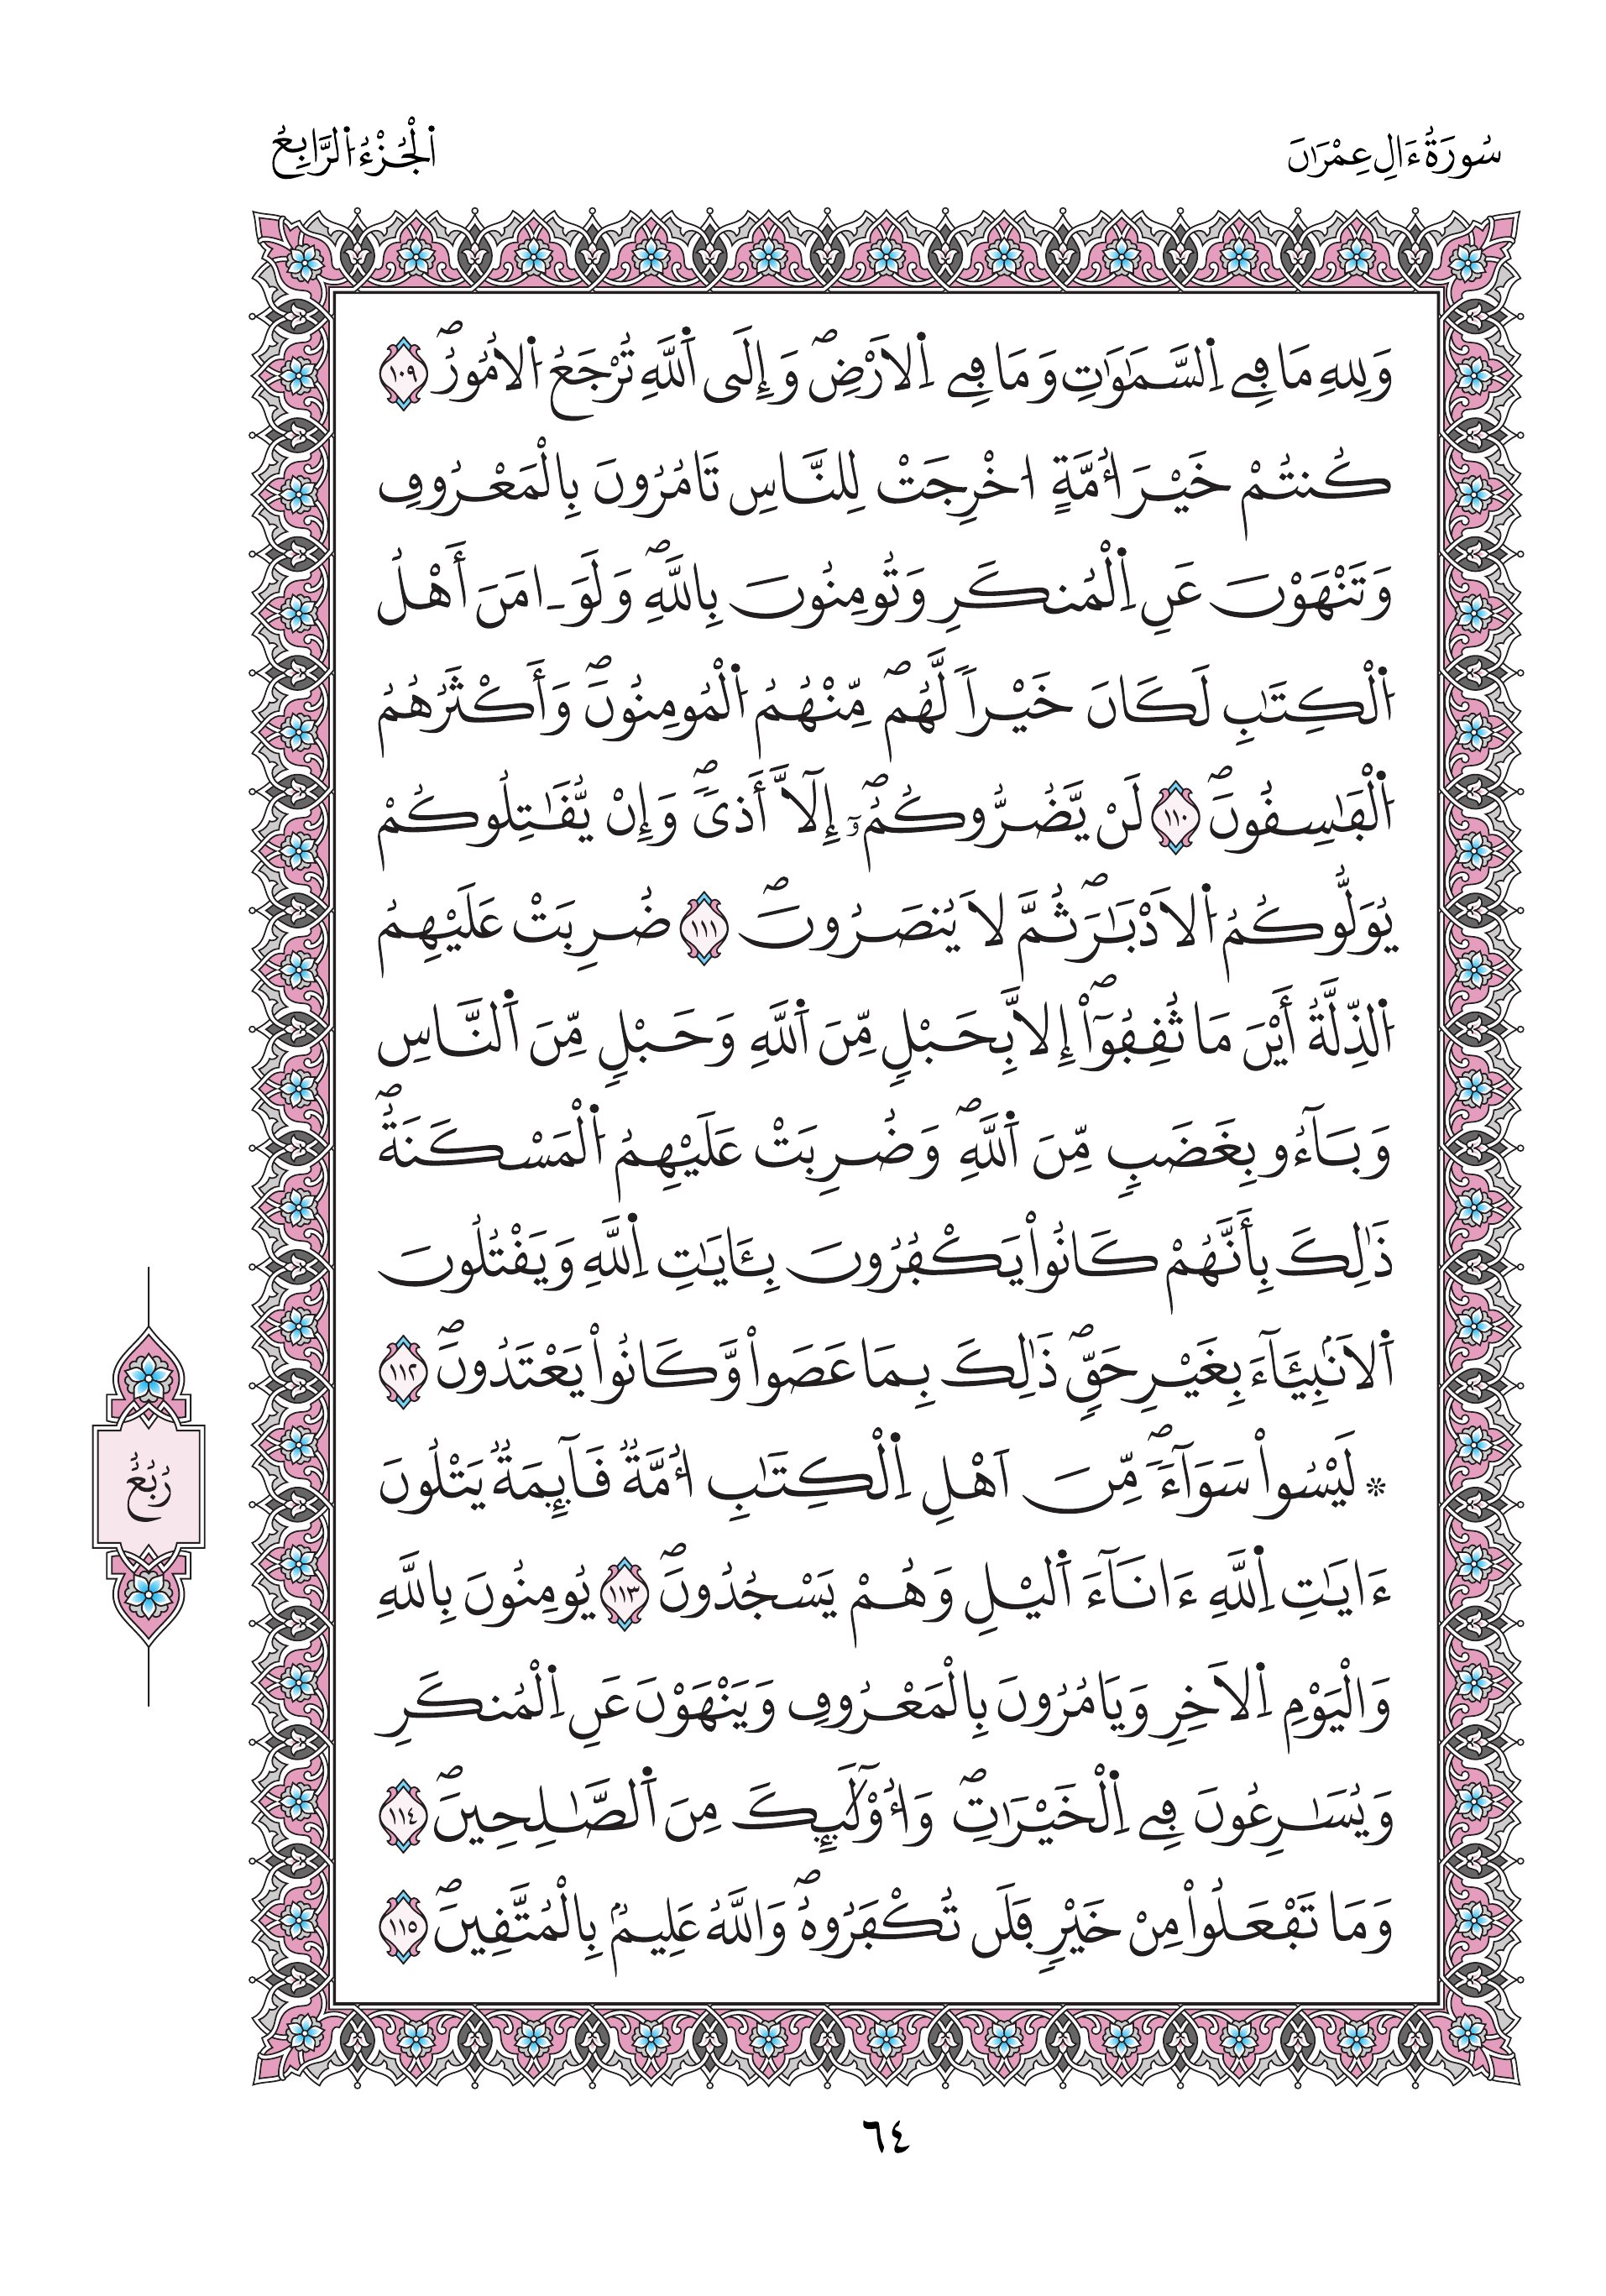 سُورَةُ ءَالِ عِمْرَٰنَ
اَ۬لْجُزْءُ اُ۬لرَّابِعُ
وَلِلهِ مَا فِے اِ۬لسَّمَٰوَٰتِ وَمَا فِے اِ۬لَارْضِۖ وَإِلَى اَ۬للَّهِ تُرْجَعُ اُ۬لُامُورُۖ ١٠٩
كُنتُمْ خَيْرَ أُمَّةٍ ا۟خْرِجَتْ لِلنَّاسِ تَامُرُونَ بِالْمَعْرُوفِ
وَتَنْهَوْنَ عَنِ اِ۬لْمُنكَرِ وَتُومِنُونَ بِاللَّهِۖ وَلَوَ ـ امَنَ أَهْلُ
اُ۬لْكِتَٰبِ لَكَانَ خَيْراٗ لَّهُمۖ مِّنْهُمُ اُ۬لْمُومِنُونَۖ وَأَكْثَرُهُمُ
اُ۬لْفَٰسِقُونَۖ ١١٠ لَنْ يَّضُرُّوكُمُۥٓۖ إِلَّآ أَذىٗۖ وَإِنْ يُّقَٰتِلُوكُمْ
يُوَلُّوكُمُ اُ۬لَادْبَٰرَۖ ثُمَّ لَا يُنصَرُونَۖ ١١١ ضُرِبَتْ عَلَيْهِمُ
اُ۬لذِّلَّةُ أَيْنَ مَا ثُقِفُوٓاْۖ إِلَّا بِحَبْلٖ مِّنَ اَ۬للَّهِ وَحَبْلٖ مِّنَ اَ۬لنَّاسِ
وَبَآءُو بِغَضَبٖ مِّنَ اَ۬للَّهِۖ وَضُرِبَتْ عَلَيْهِمُ اُ۬لْمَسْكَنَةُۖ
ذَٰلِكَ بِأَنَّهُمْ كَانُواْ يَكْفُرُونَ بِـَٔايَٰتِ اِ۬للَّهِ وَيَقْتُلُونَ
اَ۬لَانۢبِيَٓـَٔاءَ بِغَيْرِ حَقّٖۖ ذَٰلِكَ بِمَا عَصَواْ وَّكَانُواْ يَعْتَدُونَۖ ١١٢
۞ لَيْسُواْ سَوَآءٗۖ مِّنَ اَهْلِ اِ۬لْكِتَٰبِ أُمَّةٞ قَآئِمَةٞ يَتْلُونَ
ءَايَٰتِ اِ۬للَّهِ ءَانَآءَ اَ۬ليْلِ وَهُمْ يَسْجُدُونَۖ ١١٣ يُومِنُونَ بِاللَّهِ
وَالْيَوْمِ اِ۬لَاخِرِ وَيَامُرُونَ بِالْمَعْرُوفِ وَيَنْهَوْنَ عَنِ اِ۬لْمُنكَرِ
وَيُسَٰرِعُونَ فِے اِ۬لْخَيْرَٰتِۖ وَأُوْلَٰٓئِكَ مِنَ اَ۬لصَّٰلِحِينَۖ ١١٤
وَمَا تَفْعَلُواْ مِنْ خَيْرٖ فَلَن تُكْفَرُوهُۖ وَاللَّهُ عَلِيمُۢ بِالْمُتَّقِينَۖ ١١٥
رُبُعُ
٦٤